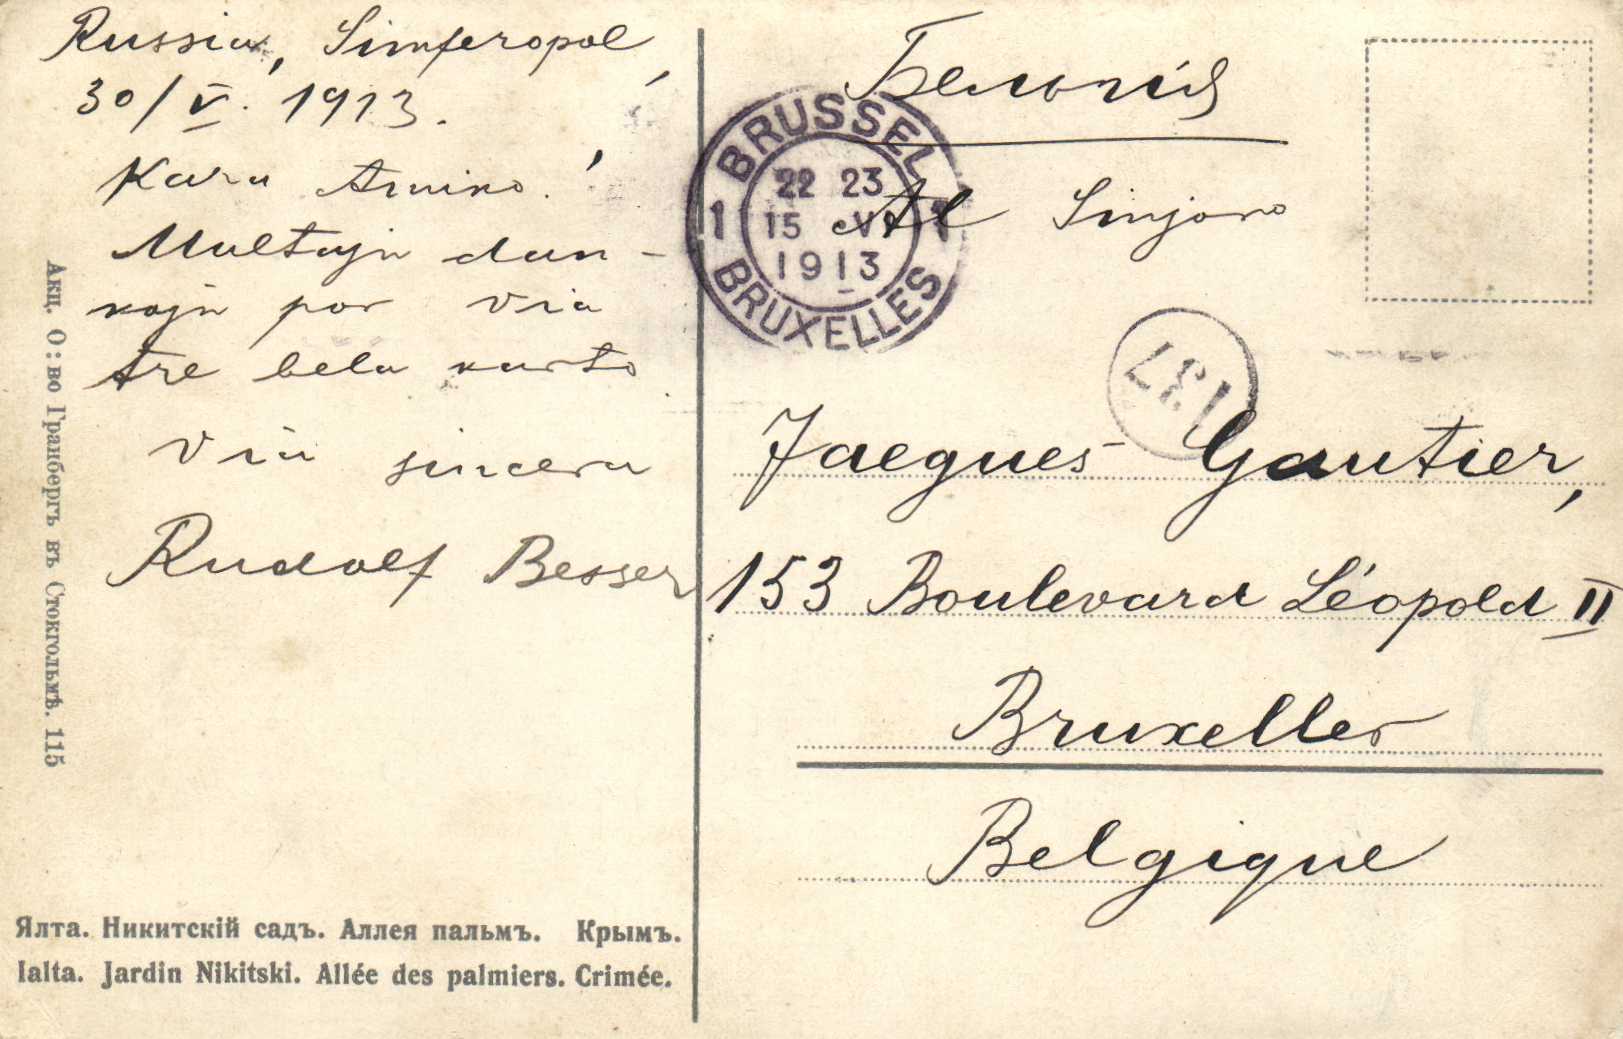 Russia, Simferopol,
30/V. 1913.
Kara Amiko!
Multajn dan-
kojn por via
tre bela karto
Via sincera
Rudolf Besser
Бельгія
Al Sinjoro
Jacques Gautier,
153 Boulevard Léopold II
Bruxelles
Belgique
BRUSSEL
22 23
1 15 VI 1
1913
BRUXELLES
137
Акц. О:во Гранбергъ въ Стокгольмѣ. 115
Ялта. Никитскій садъ. Аллея пальмъ. Крымъ.
Ialta. Jardin Nikitski. Allée des palmiers. Crimée.